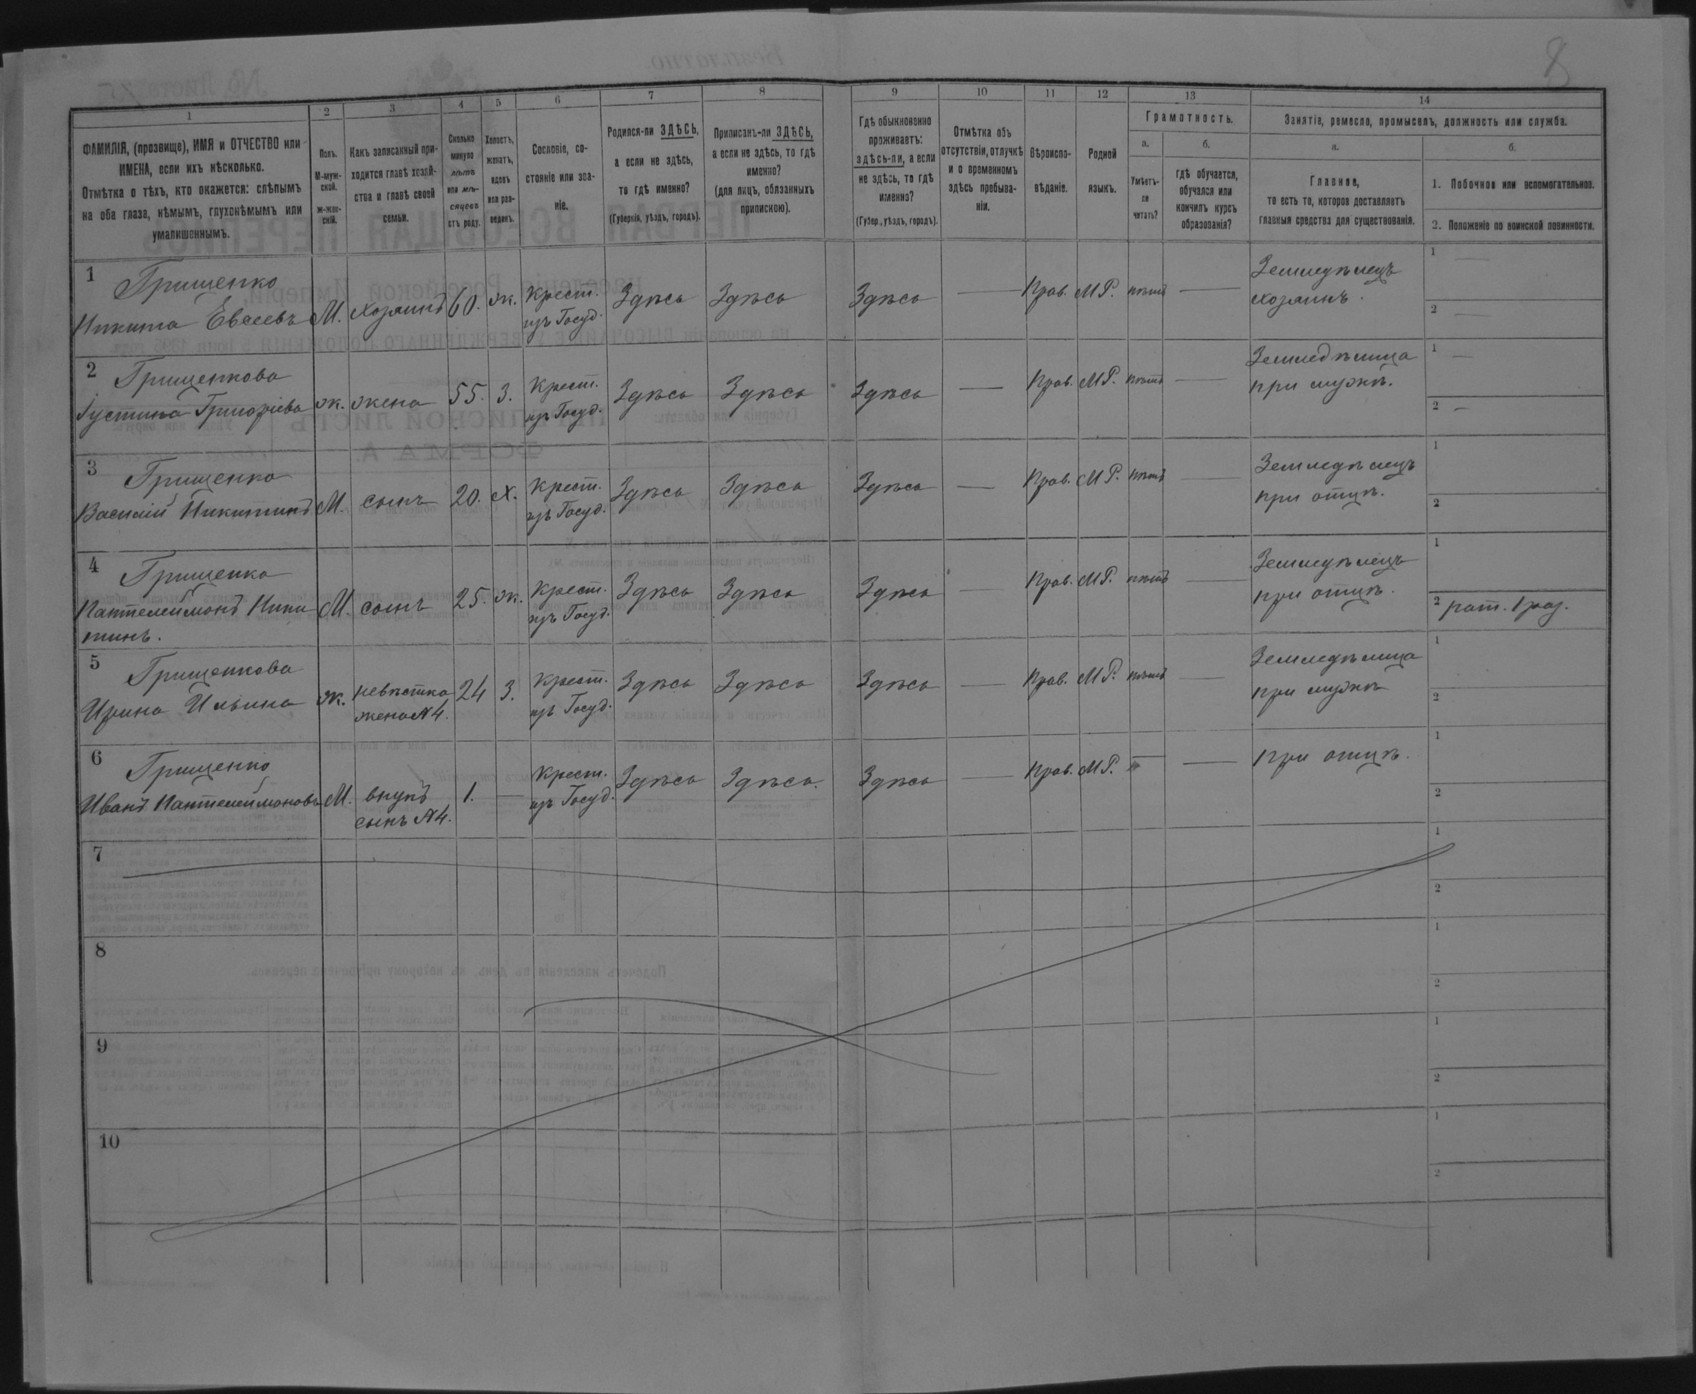 8
1 2 3 4 5 6 7 8 9 10 11 12 13 14
ФАМИЛІЯ, (прозвище), ИМЯ и ОТЧЕСТВО или
ИМЕНА, если ихъ нѣсколько.
Отмѣтка о тѣхъ, кто окажется: слѣпымъ
на оба глаза, нѣмымъ, глухонѣмымъ или
умалишеннымъ.
Полъ.
М-муж-
ской.
Ж-жен-
скій.
Какъ записанный при-
ходится главѣ хозяй-
ства и главѣ своей
семьи.
Сколько
минуло
лѣтъ
или мѣ-
сяцевъ
отъ роду.
Холостъ,
женатъ,
вдовъ
или раз-
веденъ.
Сословіе, со-
стояніе или зва-
ніе.
Родился-ли ЗДѢСЬ,
а если не здѣсь,
то гдѣ именно?
(Губернія, уѣздъ, городъ).
Приписанъ-ли ЗДѢСЬ,
а если не здѣсь, то гдѣ
именно?
(для лицъ, обязанныхъ
припискою).
Гдѣ обыкновенно
проживаетъ:
здѣсь-ли, а если
не здѣсь, то гдѣ
именно?
(Губер., уѣздъ, городъ).
Отмѣтка объ
отсутствіи, отлучкѣ
и о временномъ
здѣсь пребыва-
ніи.
Вѣроиспо-
вѣданіе.
Родной
языкъ.
Грамотность.
а.
Умѣетъ-
ли
читать?
б.
гдѣ обучается,
обучался или
кончилъ курсъ
образованія?
Занятіе, ремесло, промыселъ, должность или служба.
а.
Главное,
то есть то, которое доставляетъ
главныя средства для существованія.
б.
1. Побочное или вспомогательное.
2. Положеніе по воинской повинности.
1 Грищенко
Никита Евсеевъ М. хозяинъ 60. ж. Крест. Здѣсь Здѣсь Здѣсь — Прав. М.Р. нѣтъ — Земледѣлецъ 1 —
изъ Госуд. хозяинъ. 2 —
2 Грищенкова
Іустина Григоріева ж. жена 55. З. Крест. Здѣсь Здѣсь Здѣсь — Прав. М.Р. нѣтъ — Земледѣлица 1 —
изъ Госуд. при мужѣ. 2 —
3 Грищенко
Василій Никитинъ М. сынъ 20. Х. Крест. Здѣсь Здѣсь Здѣсь — Прав. М.Р. нѣтъ — Земледѣлецъ 1
изъ Госуд. при отцѣ. 2
4 Грищенко
Пантелеймонъ Ники М. сынъ 25. ж. Крест. Здѣсь Здѣсь Здѣсь — Прав. М.Р. нѣтъ — Земледѣлецъ 1
тинъ. изъ Госуд. при отцѣ. 2 рат. 1 раз.
5 Грищенкова
Ирина Ильина ж. невѣстка 24 З. Крест. Здѣсь Здѣсь Здѣсь — Прав. М.Р. нѣтъ — Земледѣлица 1
жена №4. изъ Госуд. при мужѣ 2
6 Грищенко
Иванъ Пантелеймоновъ М. внукъ 1. — Крест. Здѣсь Здѣсь. Здѣсь — Прав. М.Р. — — при отцѣ. 1
сынъ №4. изъ Госуд. 2
7 1
2
8 1
2
9 1
2
10 1
2